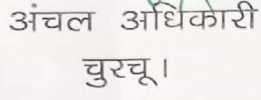 अंचल अधिकारी
चुरचू।